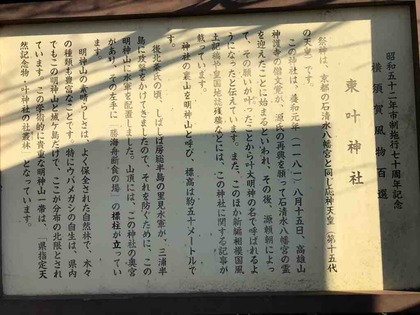 昭和五十二年市制施行七十周年記念
横須賀風物百選
東叶神社
祭神は、京都の石清水八幡宮と同じ応神天皇（第十五代
の天皇）です。
この神社は、養和元年（一一八一）八月十五日、高雄山
神護寺の僧文覚が、源氏の再興を願って石清水八幡宮の霊
を迎えたことに始まるといわれ、その後、源頼朝によっ
て、その願いが叶ったことから叶大明神の名で呼ばれるよ
うになったと伝えています。また、このほか新編相模国風
土記稿や皇国地誌残稿などには、この神社に関する記事が
載っています。
神社の裏山を明神山と呼び、標高は約五十メートルで
す。
後北条氏の頃、しばしば房総半島の里見水軍が、三浦半
島に攻撃をかけてきましたので、それを防ぐために、この
明神山に水軍を配置しました。山頂には、この神社の奥宮
があり、その左手に「勝海舟断食の場」の標柱が立ってい
ます。
明神山の素晴らしさは、よく保全された自然林で、木々
の種類も豊富なことです。特にウバメガシの自生は、県内
でもこの明神山と城ケ島だけで、ここが分布の北限とされ
ています。この学術的に貴重な明神山一帯は、「県指定天
然記念物・叶神社の社叢林」となっています。